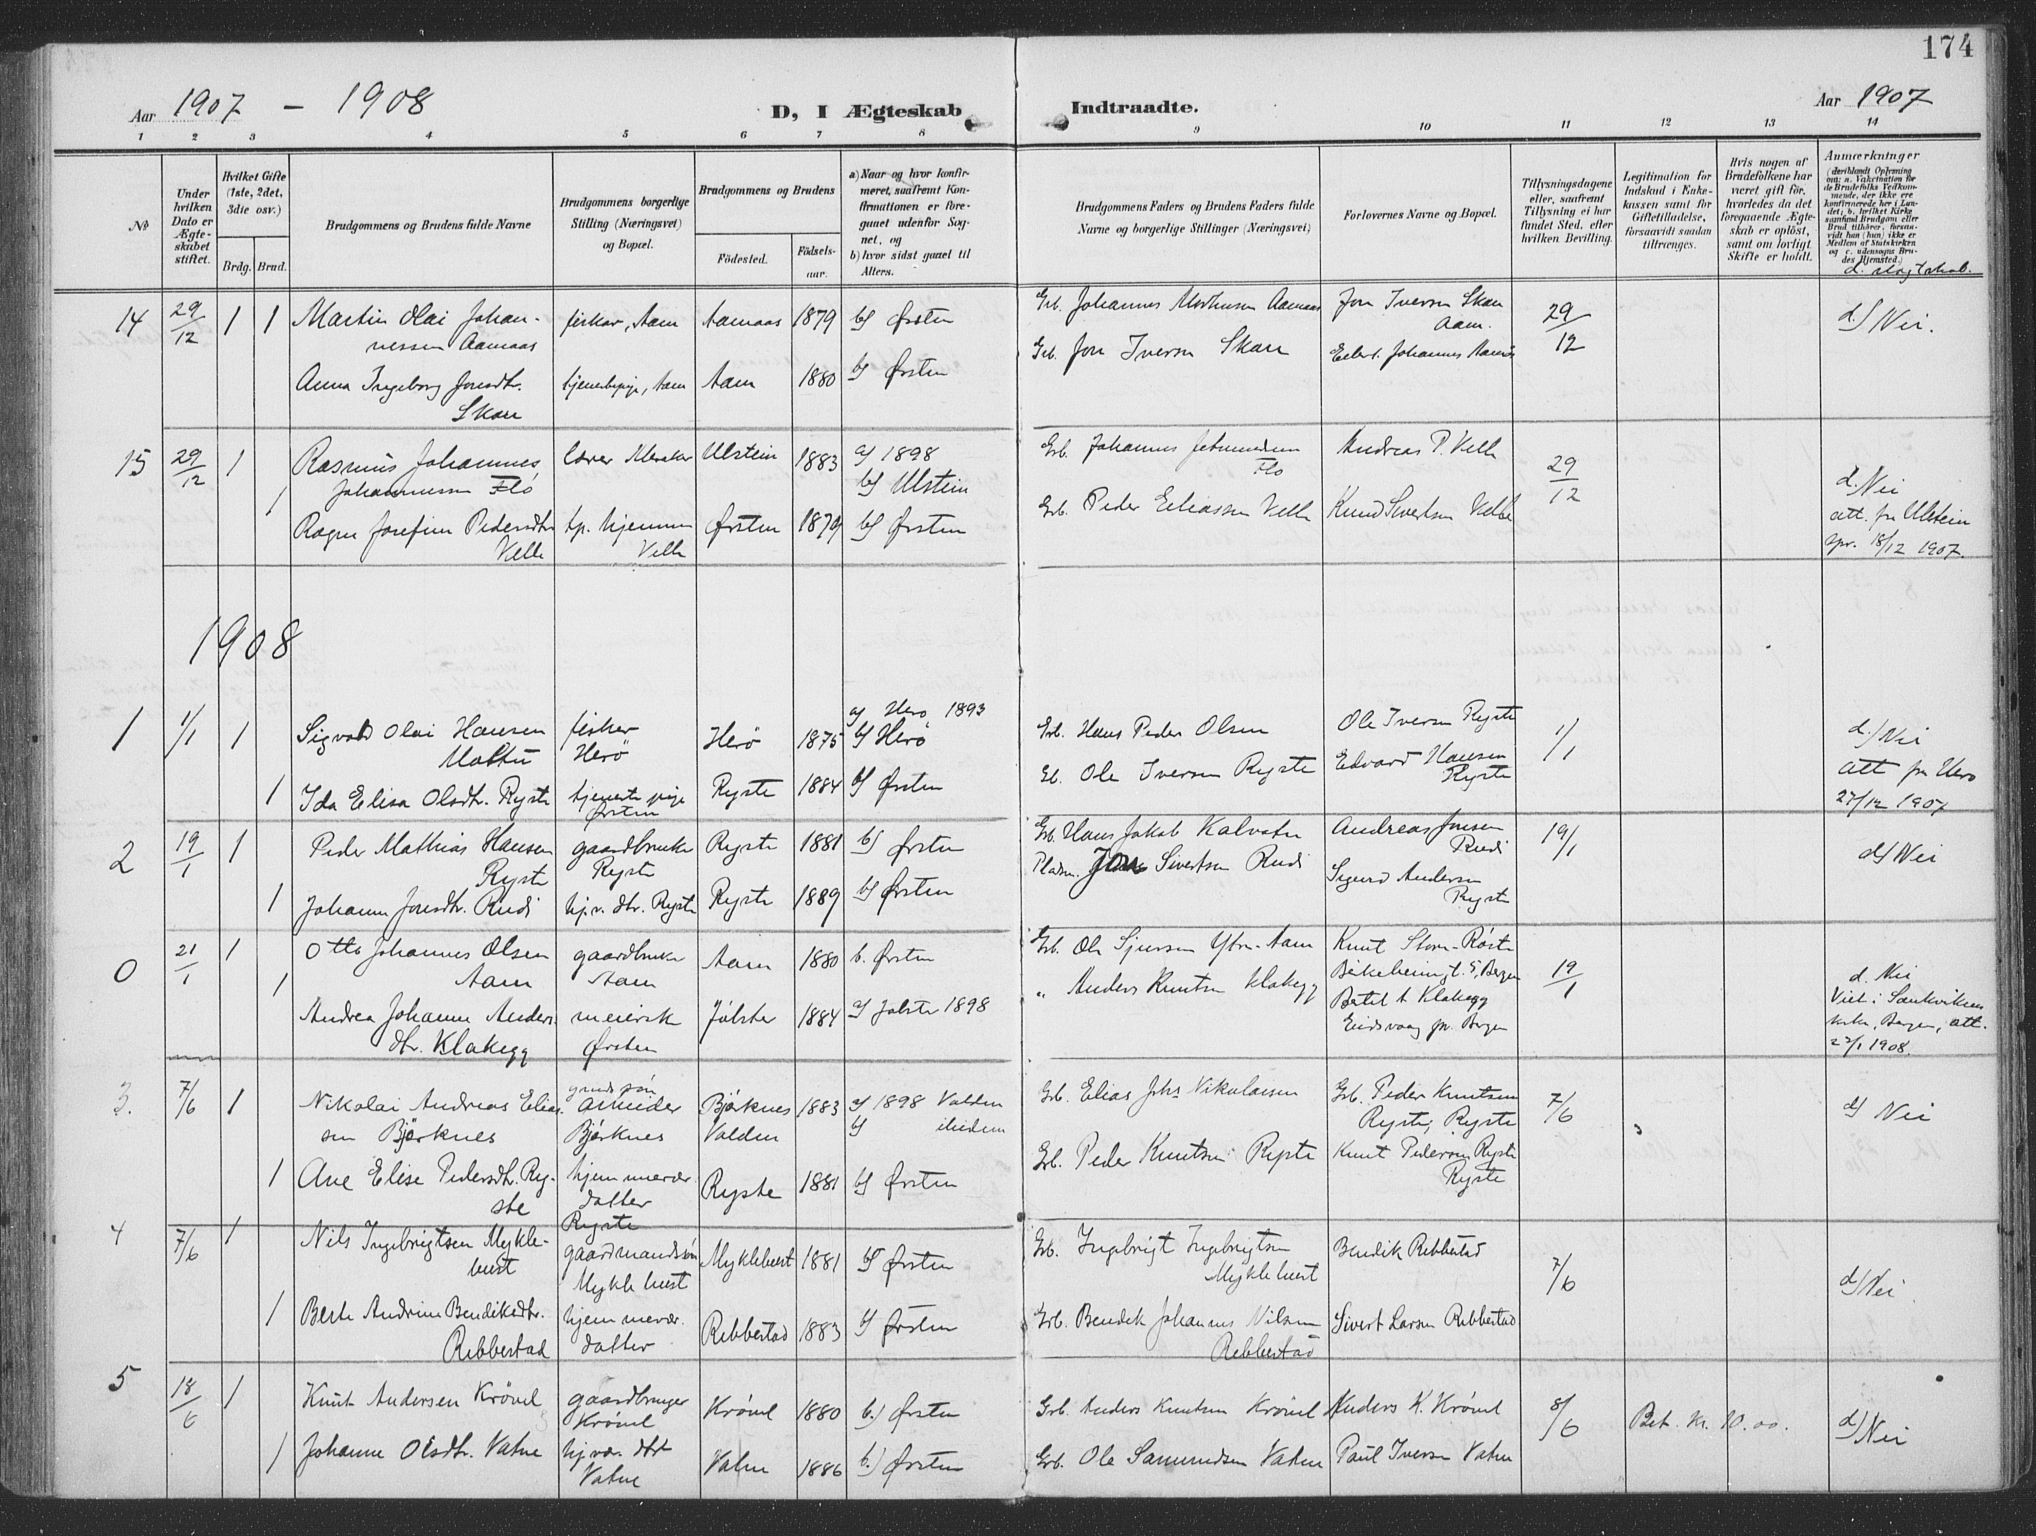 174
Aar 1907 - 1908
D, I Ægteskab Indtraadte.
Aar 1907
1 2 3 4 5 6 7 8 9 10 11 12 13 14
No
Under hvilken Dato er Ægteskabet stiftet.
Hvilket Gifte (1ste, 2det, 3die osv.)
Brdg. Brud.
Brudgommens og Brudens fulde Navne
Brudgommens borgerlige Stilling (Næringsvei) og Bopæl.
Brudgommens og Brudens
Fødested.
Fødselsaar.
a) Naar og hvor konfirmeret, saafremt Konfirmationen er foregaaet udenfor Sognet, og
b) hvor sidst gaaet til Alters.
Brudgommens Faders og Brudens Faders fulde Navne og borgerlige Stillinger (Næringsvei)
Forlovernes Navne og Bopæl.
Tillysningsdagene eller, saafremt Tillysning ei har fundet Sted, efter hvilken Bevilling.
Legitimation for Indskud i Enkekassen samt for Giftetilladelse, forsaavidt saadan tiltrænges.
Hvis nogen af Brudefolkene har været gift før, hvorledes da det foregaaende Ægteskab er opløst, samt om lovligt Skifte er holdt.
Anmærkninger
(deriblandt Oplysning om: a. Vaksination for de Brudefolks Vedkommende, der ikke ere konfirmerede her i Landet; b. hvilket Kirkesamfund Brudgom eller Brud tilhører, forsaavidt han (hun) ikke er Medlem af Statskirken og c. udensogns Brudes Hjemsted.)
d. slægtskab.
14 29/12 1 1 Martin Olai Johannessen Aamaas fisker, Aam Aamaas 1879 b) Ørsten Grb. Johannes Aamaas Jon Iversen Skaar Aam. 29/12 d) Nei.
Anna Ingeborg Jonsdtr. Skaar tjenestepige, Aam Aam 1880 b) Ørsten Grb. Jon Iversen Skaar Johannes Aamaas
15 29/12 1 Rasmus Johannes Johannessen Flø lærer Ulstein 1883 a) 1898 b) Ulstein Grb. Johannes Flø Andreas P. Velle 29/12 d. Nei
1 Ragna Josefine Pedersdtr. Velle hjemme Velle Ørsten 1879 b) Ørsten Grb. Peder Eliassen Velle Knud Sivertsen Velle att. fra Ulstein 18/12 1907.
1908
1 1/1 1 Sigvald Olai Hansen fisker Herö Herö 1875 a) Herö 1893 b) Herö Grb. Hans Peder Olsen Ole Iversen Ryste 1/1 d.) Nei
1 Ida Elisa Olsdtr. Ryste tjenestepige Ørsten Ryste 1884 b) Ørsten Ole Iversen Ryste Edvard Hansen Ryste att fra Herö 27/12 1907
2 19/1 1 Peder Mathias Hansen Ryste gaardbruker Ryste Ryste 1881 b) Ørsten Grb. Hans Jakob Kalvatn Andreas Jonsen Rudi 19/1 d) Nei
1 Johanne Jonsdtr. Rudi hj.v. dtr. Ryste Ryste 1889 b) Ørsten Pladsm. Jon Sivertsen Rudi Sigurd Andersen Ryste
0 21/1 1 Otto Johannes Olsen Aam gaardbruker Aam Aam 1880 b. Ørsten Grb. Ole Sjursen Ytre-Aam Knut Store-Røste Bergen 19/1 d. Nei
1 Andrea Johanne Andersdtr. Klakegg meierske Ørsten Jølster 1884 a) Jølster 1898 " Anders Knutsen Klakegg Bertel A Klakegg Eidsvaag pr. Bergen Viet i Sandvikens kirke, Bergen, att. 23/1 1908.
3. 7/6 1 Nikolai Andreas Eliassen Bjørknes arbeider Bjørknes Bjørknes Volden 1883 a) 1898 Volden b) ibidem Grb. Elias Johs Nikolaisen Grb. Peder Knutsen Ryste, Ryste 7/6 d) Nei
1 Ane Elise Pedersdtr. Ryste hjemmevær. datter Ryste Ryste 1881 b) Ørsten Grb. Peder Knutsen Ryste Knut Pedersen Ryste Ryste
4 7/6 1 Nils Ingebrigtsen Myklebust gaardmandssøn Myklebust Myklebust 1881 b) Ørsten Grb. Ingebrigt Ingebrigtsen Myklebust Bendik Rebbestad 7/6 d) Nei
1 Berte Andrine Bendiksdtr. Rebbestad hjemmevær. datter Rebbestad 1883 b) Ørsten Grb. Bendik Johannes Nilsen Rebbestad Sivert Larsen Rebbestad
5 18/6 1 Knut Andersen Krövel gaardbruger Krövel Krövel 1880 b.) Ørsten Grb. Anders Knutsen Krövel Anders K. Krövel 8/6 Bet. kr. 10.00. d) Nei
1 Johanne Olsdtr. Vatne hj.vær. dtr Vatne Vatne 1886 b.) Ørsten Grb. Ole Samundsen Vatne Paul Iversen Vatne